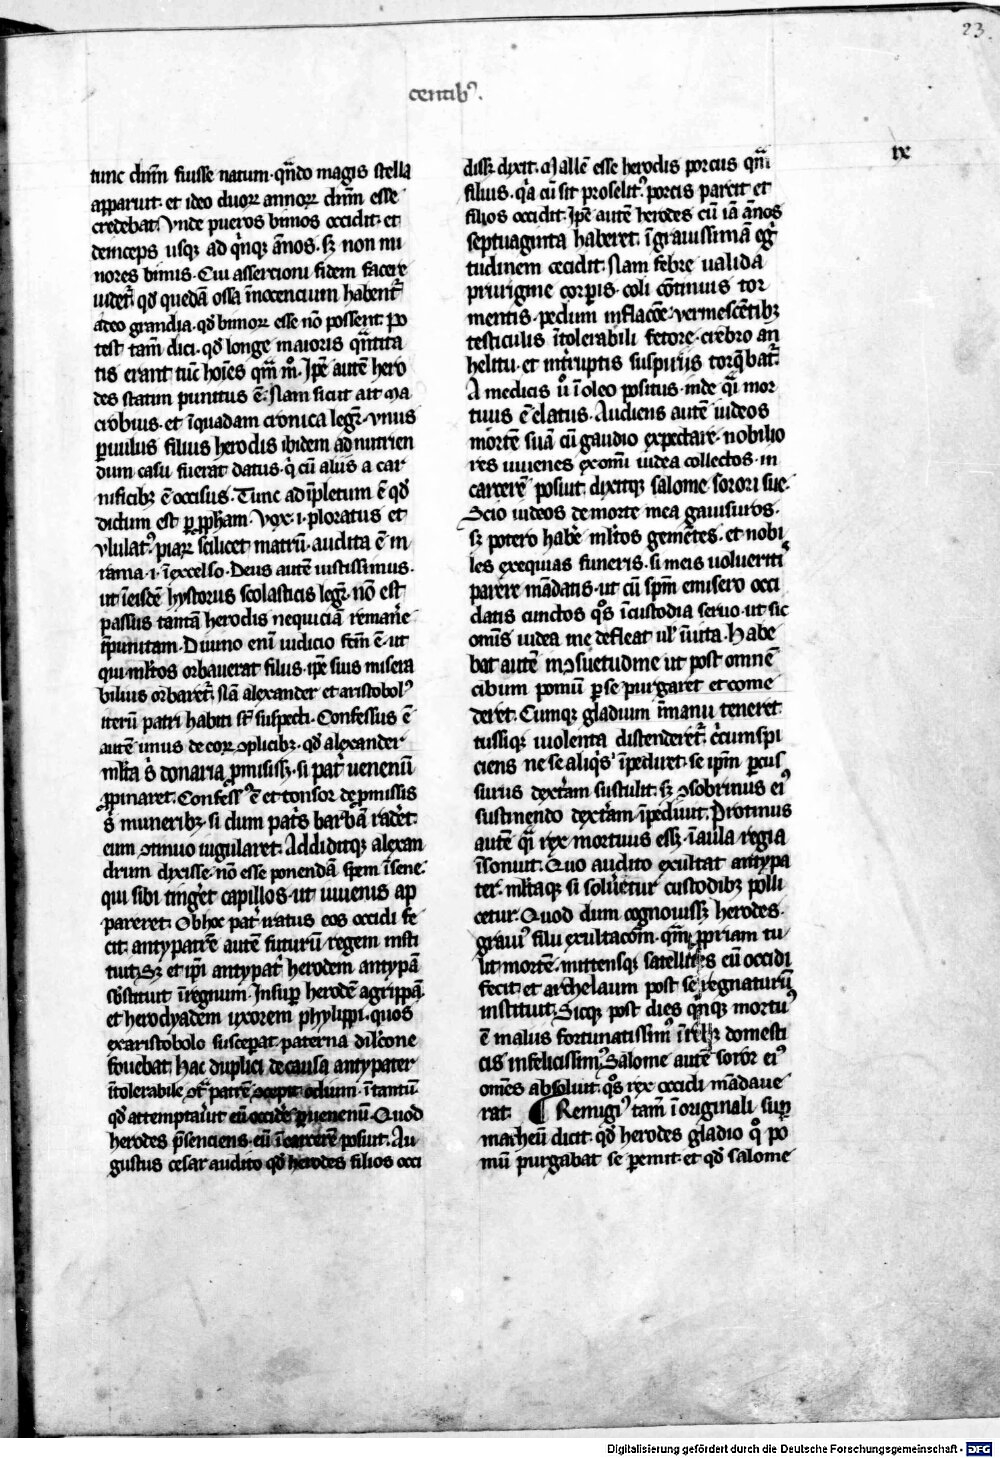 23.
centibꝰ.
ix
tunc dn̄m fuisse natum· qn̄do magis stella
apparuit· et ideo duoꝝ annoꝝ dn̄m esse
credebat· Vnde pueros bimos occidit· et
deinceps usqꝫ ad q̇nqꝫ ān̄os· sꝫ non mi
nores bimis· Cui assercioni fidem facere
uidet᷑ qd̓ quedā ossa īnocencium habent᷑
adeo grandia· qd̓ bimoꝝ esse nō possent· po
test tam̄ dici· qd̓ longe maioris qn̄tita
tis erant tūc hoīes qm̄ mͦ· Ip̄e autē hero
des statim punitus ē· Nam sicut ait ma
crobius· et īquadam cronica legit᷑· vnus
ꝑuulus filius herodis ibidem ad nutrien
dum casu fuerat datus· q̇ cū aliis a car
nificibꝫ ē occisus· Tunc ad īpletum ē qd̓
dictum est ꝑ ꝓpham· Vox· i· ploratus et
vlulatꝰ piaꝝ scilicet matrū· audita ē in
rama· i· ī excelso· Deus autē iustissimus·
ut ī eisdē hystoriis scolasticis legit᷑· nō est
passus tantā herodis nequiciā remanēe
īpunitam· Diuino enī iudicio fc̄m ē· ut
qui ml̓tos orbauerat filiis· ip̄e suis misera
bilius orbaret᷑· Nā alexander et aristobolꝰ
iterū patri habiti sn̄t suspecti· Confessus ē
autē unus de eoꝝ ꝯplicibꝫ· qd̓ alexander
ml̓ta s̓ donaria ꝓmisisꝫ· si pat̓ uenenū
ꝓpinaret· Confessꝰ ē et tonsor de ꝓmissis
s̓ muneribꝫ· si dum pat̓s barbā raderet·
eum ꝯtinuo iugularet· Addiditqꝫ alexan
drum dixisse· nō esse ponendā spem ī sene·
qui sibi tinger̓t capillos· ut iuuenis ap
pareret· Ob hoc pat̓ iratus eos occidi fe
cit· antypatrē autē futurū regem insti
tuit· Sꝫ et ip̄i antypat̓ herodem antypā
sb̓stituit ī regnum· Insuꝑ herodē agrippā
et herodyadem uxorem phylippi· quos
ex aristobolo susceperat paterna dilc̄one
fouebat· Hac duplici de causa antypater
ītolerabile ꝯt᷑ patrē ꝯcepit odium· ī tantū
qd̓ attemptauit eū occid̓e ꝑ uenenū· Quod
herodes p̄senciens· eū ī carcerē posuit· Au
gustus cesar audito qd̓ herodes filios occi
disꝫ· dixit· Mallē esse herodis porcus qm̄
filius· q̇a cū sit proselitꝰ porcis parcit et
filios occidit· Ip̄e autē herodes cū iā ān̄os
septuaginta haberet· ī grauissimā eg̓
tudinem cecidit· Nam febre ualida
prurigine corꝑis· coli cōtinuis tor
mentis· pedum inflacōe· vermescētibꝫ
testiculis ītolerabili fetore· crebro an
helitu· et int̓ruptis suspiriis torq̄bat᷑·
A medicis ū ī oleo positus· inde q̇i mor
tuus ē elatus· Audiens autē iudeos
mortē suā cū gaudio expectare· nobilio
res iuuenes ex om̄i iudea collectos· in
carcerē posuit· dixitqꝫ salome sorori sue·
Scio iudeos de morte mea gauisuros·
sꝫ potero habe̓ ml̓tos gemētes· et nobi
les exequias funeris· si meis uolueritis
parere mādatis· ut cū spm̄ emisero occi
datis cunctos qͦs ī custodia seruo· ut sic
omīs iudea me defleat ul̓ īuita· Habe
bat autē in ꝯsuetudine ut post omnē
cibum pomū ꝑ se purgaret et come
deret· Cumqꝫ gladium ī manu teneret
tussiqꝫ uiolenta distenderet᷑· cīrcumspi
ciens ne se aliq̇s īpediret· se ip̄m ꝑcus
surus dext̓am sustulit· sꝫ ꝯsobrinus eiꝰ
sustinendo dext̓am īpediuit· Protinus
autē q̇i rex mortuus essꝫ· ī aula regia
īsonuit· Quo audito exultat antypa
ter· ml̓taqꝫ si solu̓etur custodibꝫ polli
cetur· Quod dum cognouissꝫ herodes·
grauiꝰ filii exultacōm· qm̄ ꝓpriam tu
lit mortē· mittensqꝫ satellites eū occidi
fecit· et archelaum post se regnaturū
instituit· Sicqꝫ post dies q̇nqꝫ mortuꝰ
ē malus fortunatissimꝰ ī domesti
cis infelicissimꝰ· Salome autē soror eiꝰ
omēs absoluit· qͦs rex occidi mādaue
rat· ¶ Remigiꝰ tam̄ ī originali suꝑ
matheū dicit· qd̓ herodes gladio qͦ po
mū purgabat se ꝑemit· et qd̓ salome
Digitalisierung gefördert durch die Deutsche Forschungsgemeinschaft - DFG